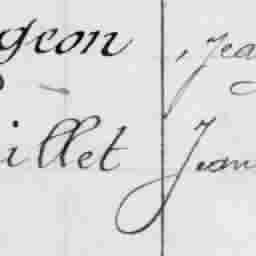 geon , Jea
illet Jean